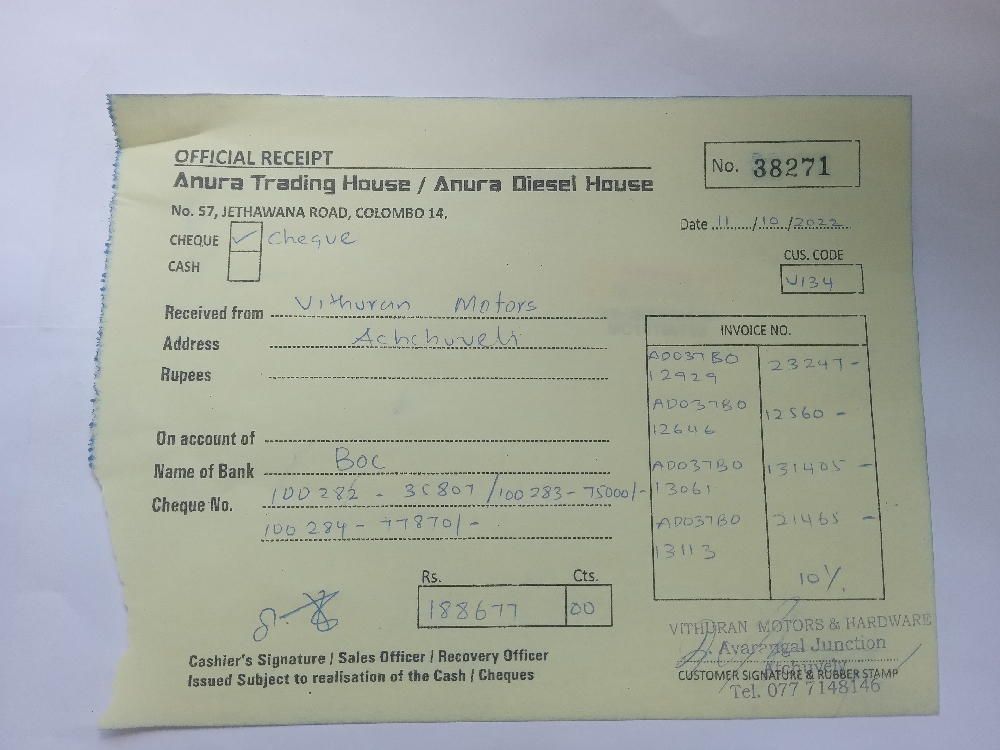 OFFICIAL RECEIPT
Anura Trading House / Anura Diesel House
No. 38271
No. 57, JETHAWANA ROAD, COLOMBO 14,
Date 11/10/2022
CHEQUE ✓ Cheque
CASH
CUS. CODE
V134
Received from Vithuran Motors
Address Achchuveli
Rupees
On account of
Name of Bank BOC
Cheque No. 100282 - 35807 /100283 - 75000/-
100284 - 77870/-
INVOICE NO.
AD037B0 12929 23247 -
AD037B0 12646 12560 -
AD037B0 13061 131405 -
AD037B0 13113 21465 -
10%
Rs. Cts.
188677 00
Cashier's Signature / Sales Officer / Recovery Officer
Issued Subject to realisation of the Cash / Cheques
VITHURAN MOTORS & HARDWARE
Avarangal Junction
Atchuvely
CUSTOMER SIGNATURE & RUBBER STAMP
Tel. 077 7148146